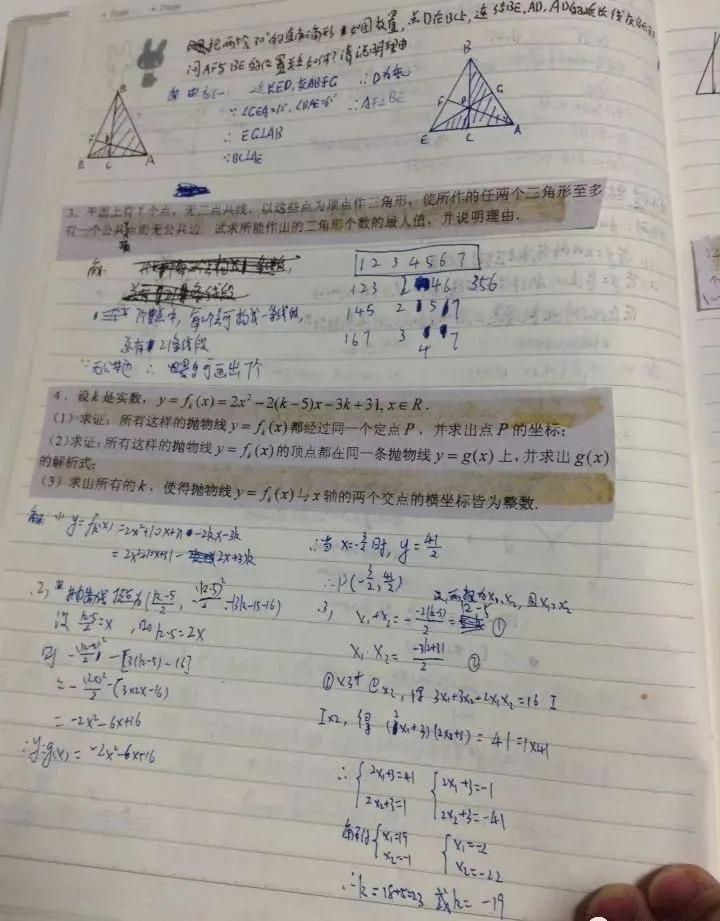 把两个30°的直角三角形如图放置，点D在BC上，连结BE、AD，AD的延长线交BE于
问AF与BE的位置关系如何？请说明理由
连结ED，交AB于G ∴D为垂心
∴AF⊥BE
∴EG⊥AB
∵BC⊥AE
B
F
D
E
C
A
B
G
F
D
E
C
A
3．平面上有7个点，无三点共线，以这些点为顶点作三角形，使所作的任两个三角形至多
有一个公共顶点而无公共边．试求所能作出的三角形个数的最大值，并说明理由．
解：
1 2 3 4 5 6 7
123 2 46 356
145 2 5 7
167 3 4 7
7个点中，每2个点可构成一条线段，
总有21条线段
∵无公共边 ∴ 可画出7个
4．设k是实数，y=f_k(x)=2x²-2(k-5)x-3k+31, x∈R．
(1)求证：所有这样的抛物线y=f_k(x)都经过同一个定点P，并求出点P的坐标；
(2)求证：所有这样的抛物线y=f_k(x)的顶点都在同一条抛物线y=g(x)上，并求出g(x)
的解析式；
(3)求出所有的k，使得抛物线y=f_k(x)与x轴的两个交点的横坐标皆为整数．
解 (1) y=f_k(x)=2x²+10x+31-2kx-3k
∴当x=-3/2时，y=41/2
∴P(-3/2, 41/2)
(2) 抛物线顶点为(k-5/2, -(k-5)²/2-(3k-15-16)
设k-5/2=x，即k-5=2x
则 -(k-5)²/2-[3(k-5)-16]
=-(2x)²/2-(3×2x-16)
=-2x²-6x+16
∴y=g(x)=-2x²-6x+16
3, 设两根为x₁、x₂，且x₁≥x₂
x₁+x₂=--2(k-5)/2=k-5 ①
x₁·x₂=-3k+31/2 ②
①×3+②×2，得 3x₁+3x₂+2x₁x₂=16 I
I×2，得 (2x₁+3)(2x₂+3)=41=1×41
∴{2x₁+3=41 {2x₁+3=-1
2x₂+3=1 2x₂+3=-41
解得{x₁=19 {x₁=-2
x₂=-1 x₂=-22
∴k=18+5=23 或k=-19